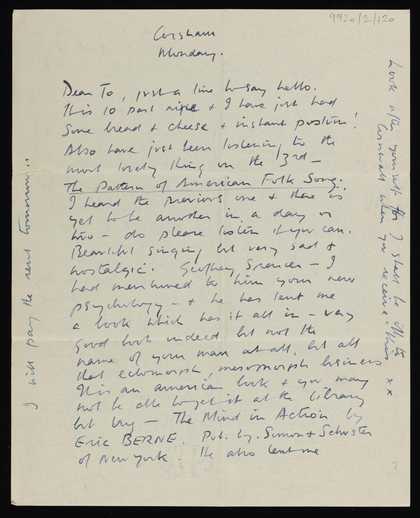 9920/2/120
Corsham
Monday.
Dear To, just a line to say hello.
It is 10 past nine & I have just had
some bread & cheese & instant postum!
Also have just been listening to the
most lovely thing on the 3rd —
The Pattern of American Folk Song.
I heard the previous one & there is
yet to be another in a day or
two — do please listen if you can.
Beautiful singing but very sad &
nostalgic. Geoffrey Spencer — I
had mentioned to him your new
psychology — & he has lent me
a book which has it all in — very
good book indeed but not the
name of your man at all, but all
that ectomorph, mesomorph business
It is an American book & you may
not be able to get it at the library
but try — The Mind in Action by
Eric BERNE. Pub. by. Simon & Schuster
of New York. He also lent me
I will pay the rent tomorrow
Look after yourself I shall be off to
Cornwall when you receive this x x